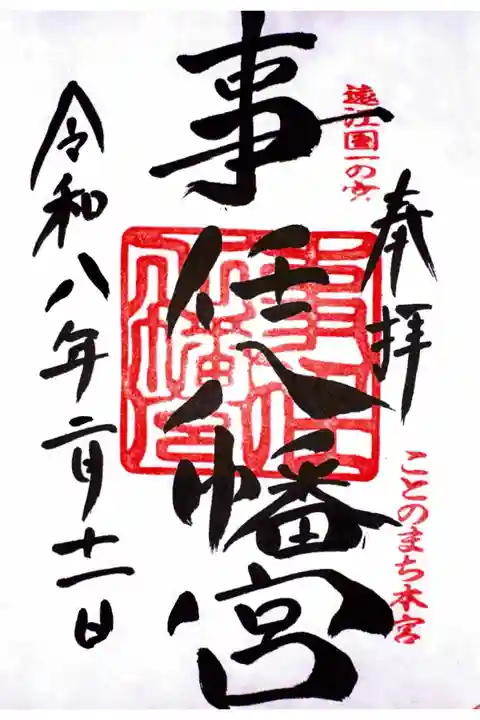 奉拝
遠江国一の宮
ことのまち本宮
事任八幡宮
事任八幡宮
令和八年二月十一日